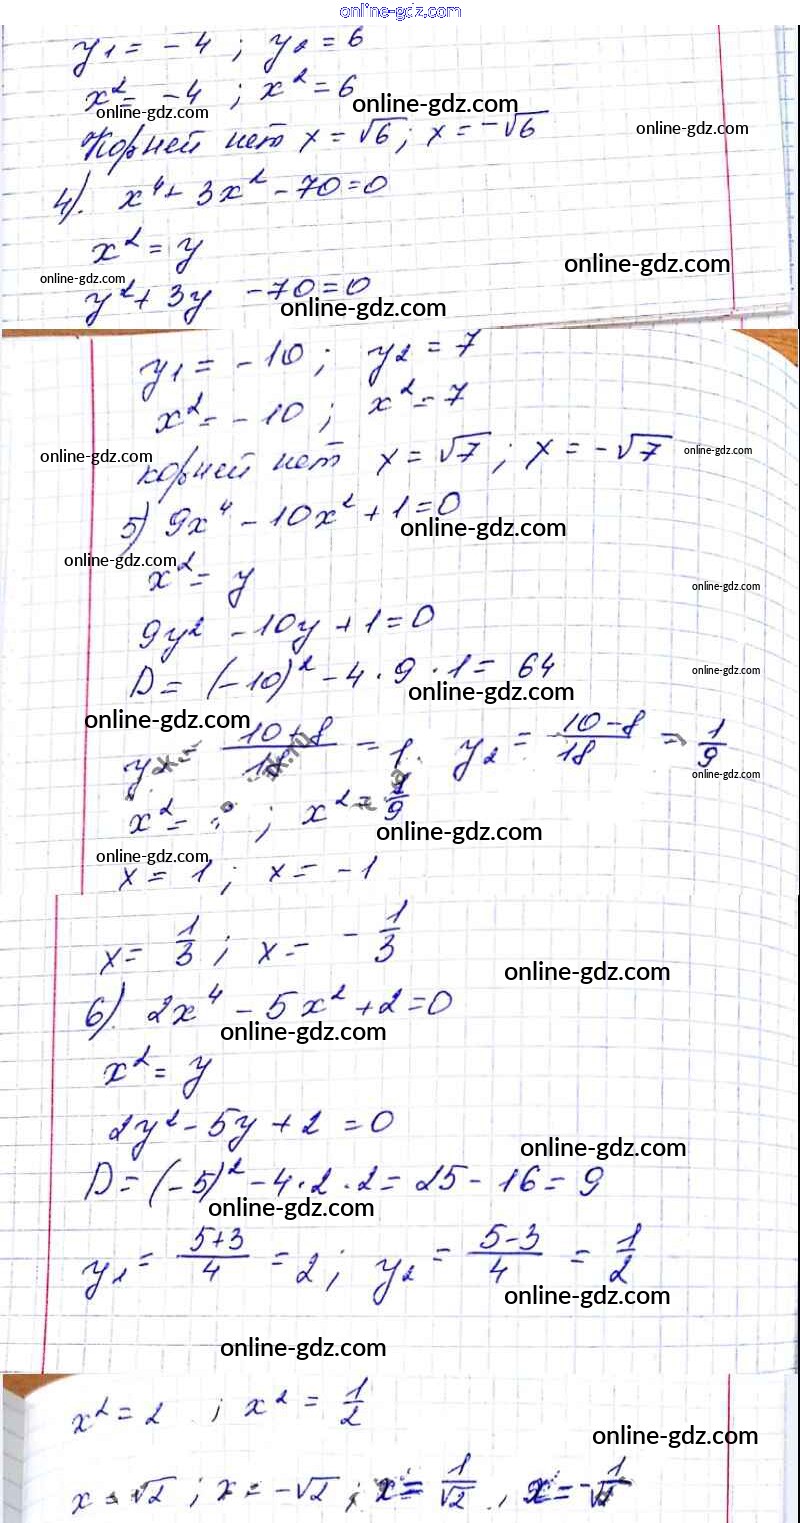 online-gdz.com
y₁ = -4 ; y₂ = 6
x² = -4 ; x² = 6
online-gdz.com online-gdz.com
Корней нет x = √6 ; x = -√6 online-gdz.com
4). x⁴ + 3x² - 70 = 0
x² = y
online-gdz.com online-gdz.com
y² + 3y - 70 = 0
online-gdz.com
y₁ = -10 ; y₂ = 7
x² = -10 ; x² = 7
online-gdz.com корней нет x = √7 ; x = -√7 online-gdz.com
5) 9x⁴ - 10x² + 1 = 0
online-gdz.com
online-gdz.com
x² = y online-gdz.com
9y² - 10y + 1 = 0
D = (-10)² - 4 · 9 · 1 = 64 online-gdz.com
online-gdz.com
online-gdz.com
= (10+8)/18 = 1 y₂ = (10-8)/18 = 1/9
online-gdz.com
x² = ; x² = 1/9
online-gdz.com
online-gdz.com
x = 1 ; x = -1
x = 1/3 ; x = -1/3
online-gdz.com
6). 2x⁴ - 5x² + 2 = 0
online-gdz.com
x² = y
2y² - 5y + 2 = 0
online-gdz.com
D = (-5)² - 4 · 2 · 2 = 25 - 16 = 9
online-gdz.com
y₁ = (5+3)/4 = 2 ; y₂ = (5-3)/4 = 1/2
online-gdz.com
online-gdz.com
x² = 2 ; x² = 1/2
online-gdz.com
x = √2 ; x = -√2 ; x = 1/√2 , x = -1/√2